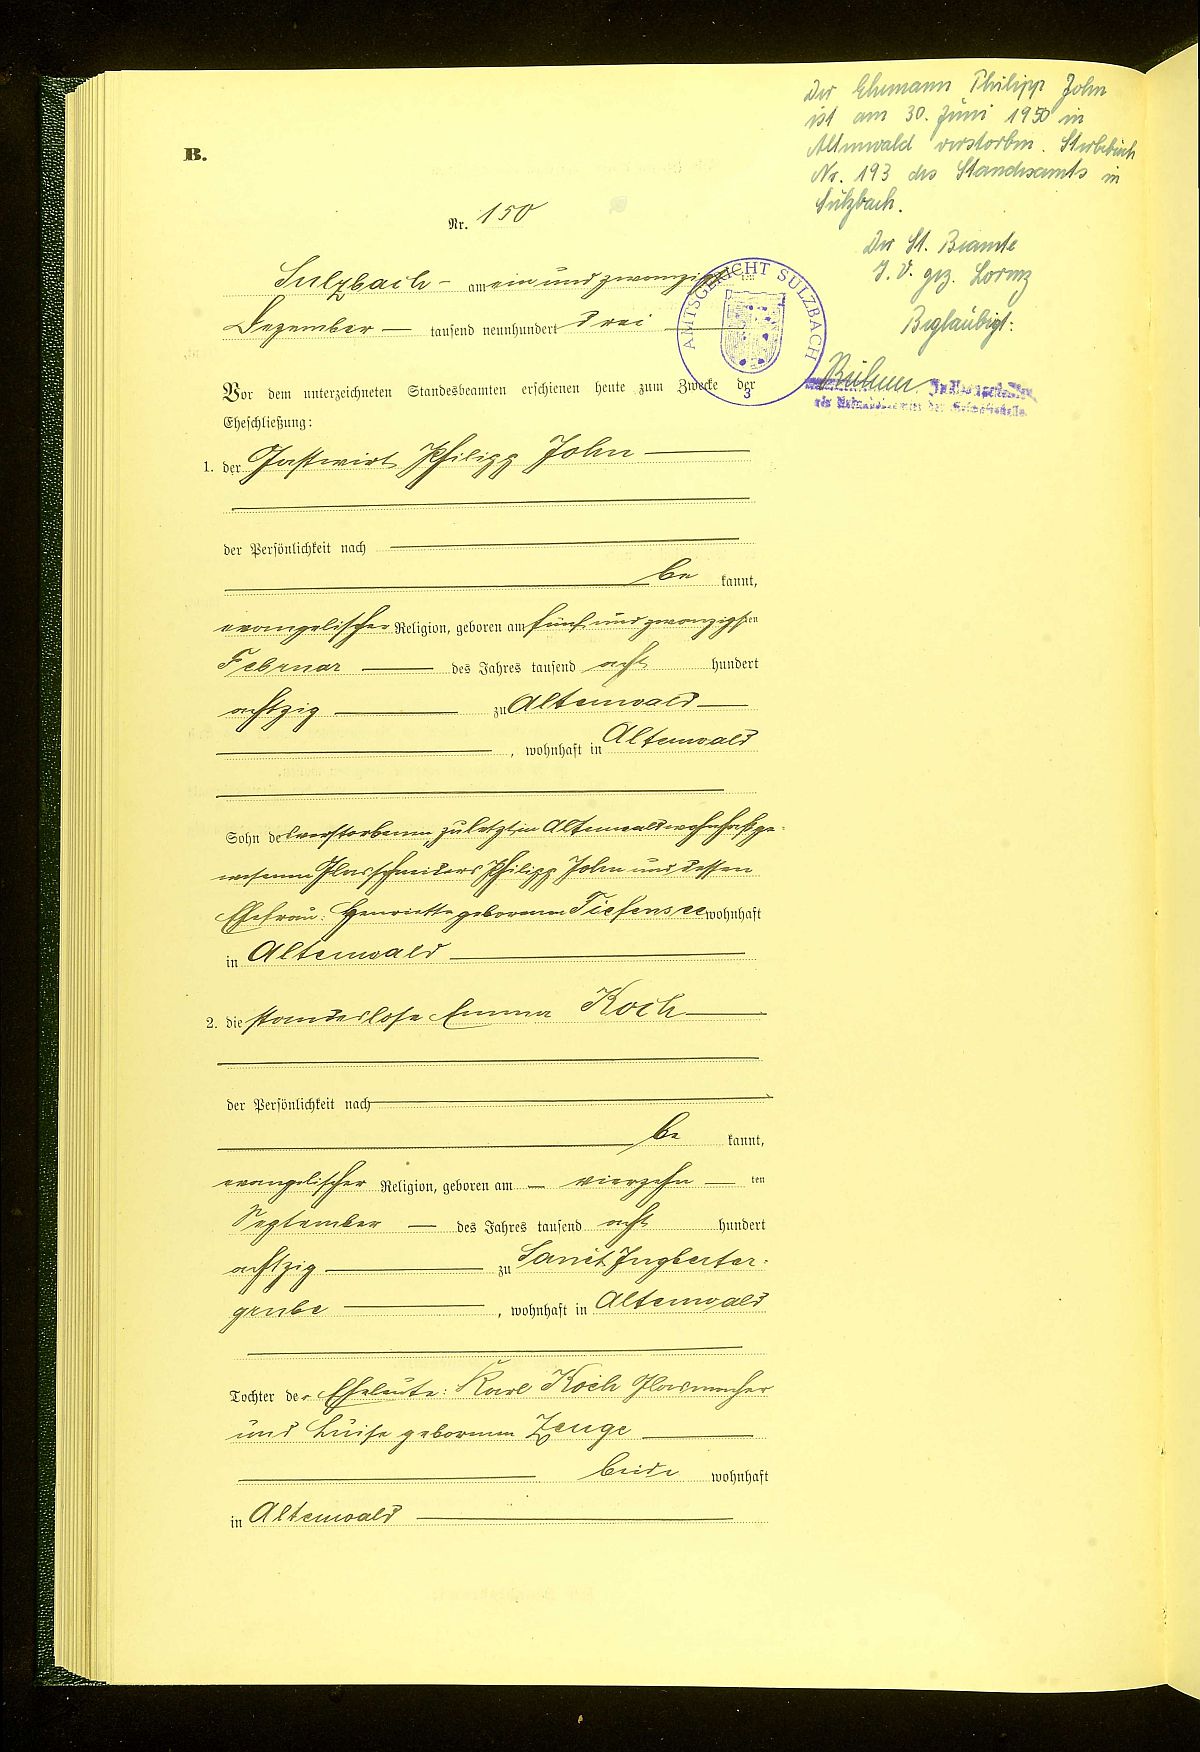 Der Ehemann Philipp John
ist am 30. Juni 1950 in
Altenwald verstorben. Sterbebuch
Nr. 193 des Standesamts in
Sulzbach.
Der St. Beamte
I. V. gez. Lorenz
Beglaubigt:
B.
Nr. 150
Sulzbach - am ein und zwanzigsten
Dezember — tausend neunhundert drei —
AMTSGERICHT SULZBACH
3
Vor dem unterzeichneten Standesbeamten erschienen heute zum Zwecke der
Eheschließung:
1. der Gastwirt Philipp John —
der Persönlichkeit nach —
— be kannt,
evangelischer Religion, geboren am fünf und zwanzigsten
Februar — des Jahres tausend acht hundert
achtzig — zu Altenwald —
— , wohnhaft in Altenwald
Sohn des verstorbenen, zuletzt in Altenwald wohnhaft ge-
wesenen Glasschneiders Philipp John und dessen
Ehefrau: Henriette geborenen Tiefensee wohnhaft
in Altenwald —
2. die standeslose Emma Koch —
der Persönlichkeit nach —
— be kannt,
evangelischer Religion, geboren am — vierzehn — ten
September — des Jahres tausend acht hundert
achtzig — zu Sanct Ingberter-
grube — , wohnhaft in Altenwald
Tochter der Eheleute: Karl Koch Glasmacher
und Luise geborenen Zeuge —
— beide wohnhaft
in Altenwald —